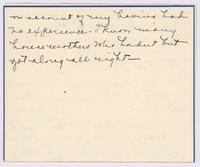 on account of my having had
no experience. I know many
house mothers who hadn't but
get along all right—